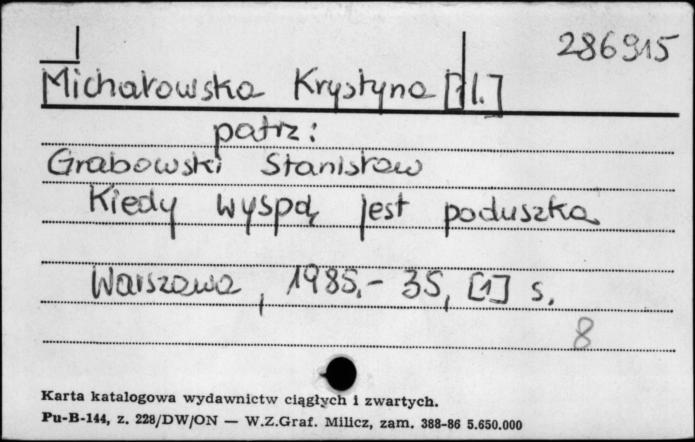 286915
Michałowska Krystyna [Il.]
patrz:
Grabowski Stanisław
Kiedy wyspą jest poduszka
Warszawa, 1985.- 35, [1] s.
8
Karta katalogowa wydawnictw ciągłych i zwartych.
Pu-B-144, z. 228/DW/ON — W.Z.Graf. Milicz, zam. 388-86 5.650.000